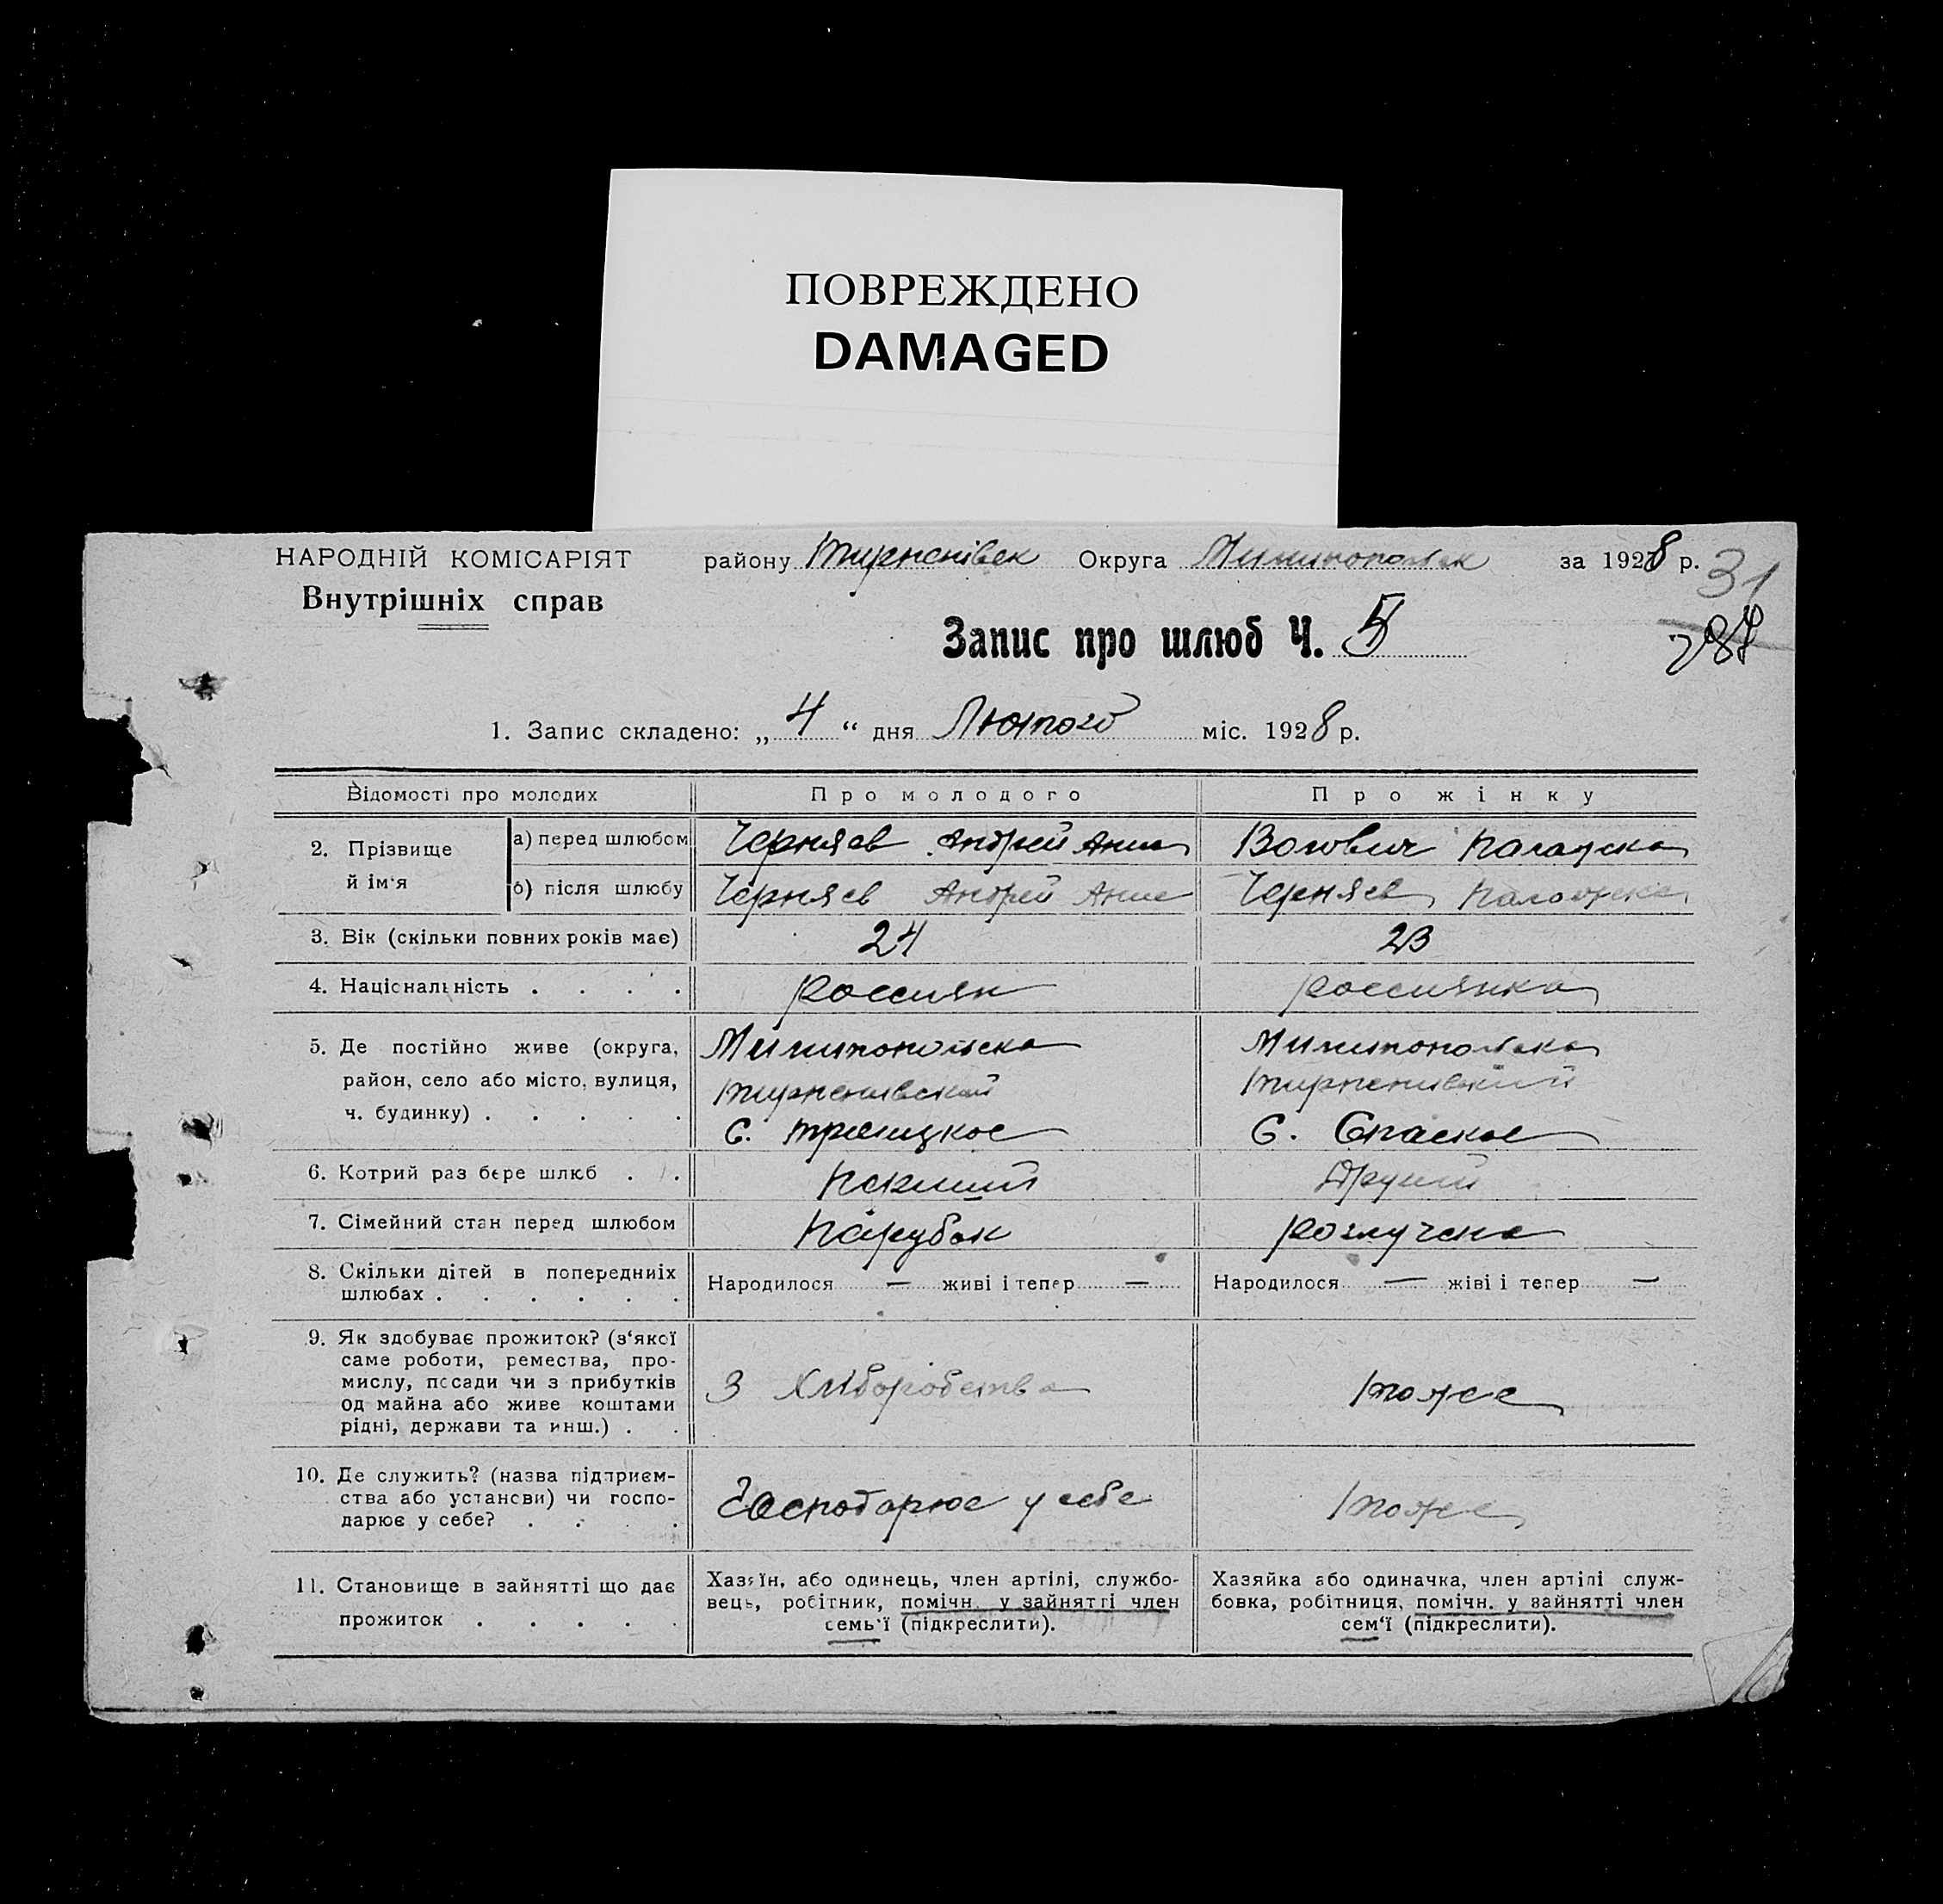 ПОВРЕЖДЕНО
DAMAGED
НАРОДНІЙ КОМІСАРІЯТ району Округа за 1928 р. 31
Внутрішніх справ
Запис про шлюб Ч. 5
284
1. Запис складено: „ 4 “ дня Лютого міс. 1928 р.
Відомості про молодих Про молодого Про жінку
2. Прізвище й ім‘я а) перед шлюбом Черняев Андрей Волович
б) після шлюбу Черняев Андрей Черняев
3. Вік (скільки повних років має) 24 23
4. Національність . . . . россиян россиянка
5. Де постійно живе (округа,
район, село або місто, вулиця,
ч. будинку) . . . . .
с. Троицкое с. Спаское
6. Котрий раз бере шлюб . . Перший Другий
7. Сімейний стан перед шлюбом Парубок розлучена
8. Скільки дітей в попередниіх
шлюбах . . . . . .
Народилося — живі і тепер — Народилося — жіві і тепер —
9. Як здобуває прожиток? (з‘якої
саме роботи, ремества, про-
мислу, посади чи з прибутків
од майна або живе коштами
рідні, держави та инш.) . .
З хліборобства тоже
10. Де служить? (назва підприєм-
ства або установи) чи госпо-
дарює у себе? . . . .
Господарює у себе тоже
11. Становище в зайнятті що дає
прожиток . . . . .
Хазяїн, або одинець, член артілі, службо-
вець, робітник, помічн. у зайнятті член
семь‘ї (підкреслити).
Хазяйка або одиначка, член артілі служ-
бовка, робітниця, помічн. у зайнятті член
сем‘ї (підкреслити).